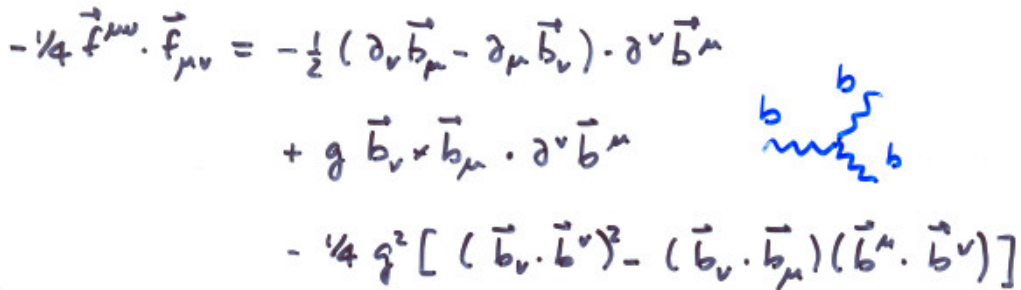 -1/4 f⃗^{μν} · f⃗_{μν} = -1/2 (∂_ν b⃗_μ - ∂_μ b⃗_ν) · ∂^ν b⃗^μ
+ g b⃗_ν × b⃗_μ · ∂^ν b⃗^μ
b b b
- 1/4 g² [ (b⃗_ν · b⃗^ν)² - (b⃗_ν · b⃗_μ)(b⃗^μ · b⃗^ν) ]